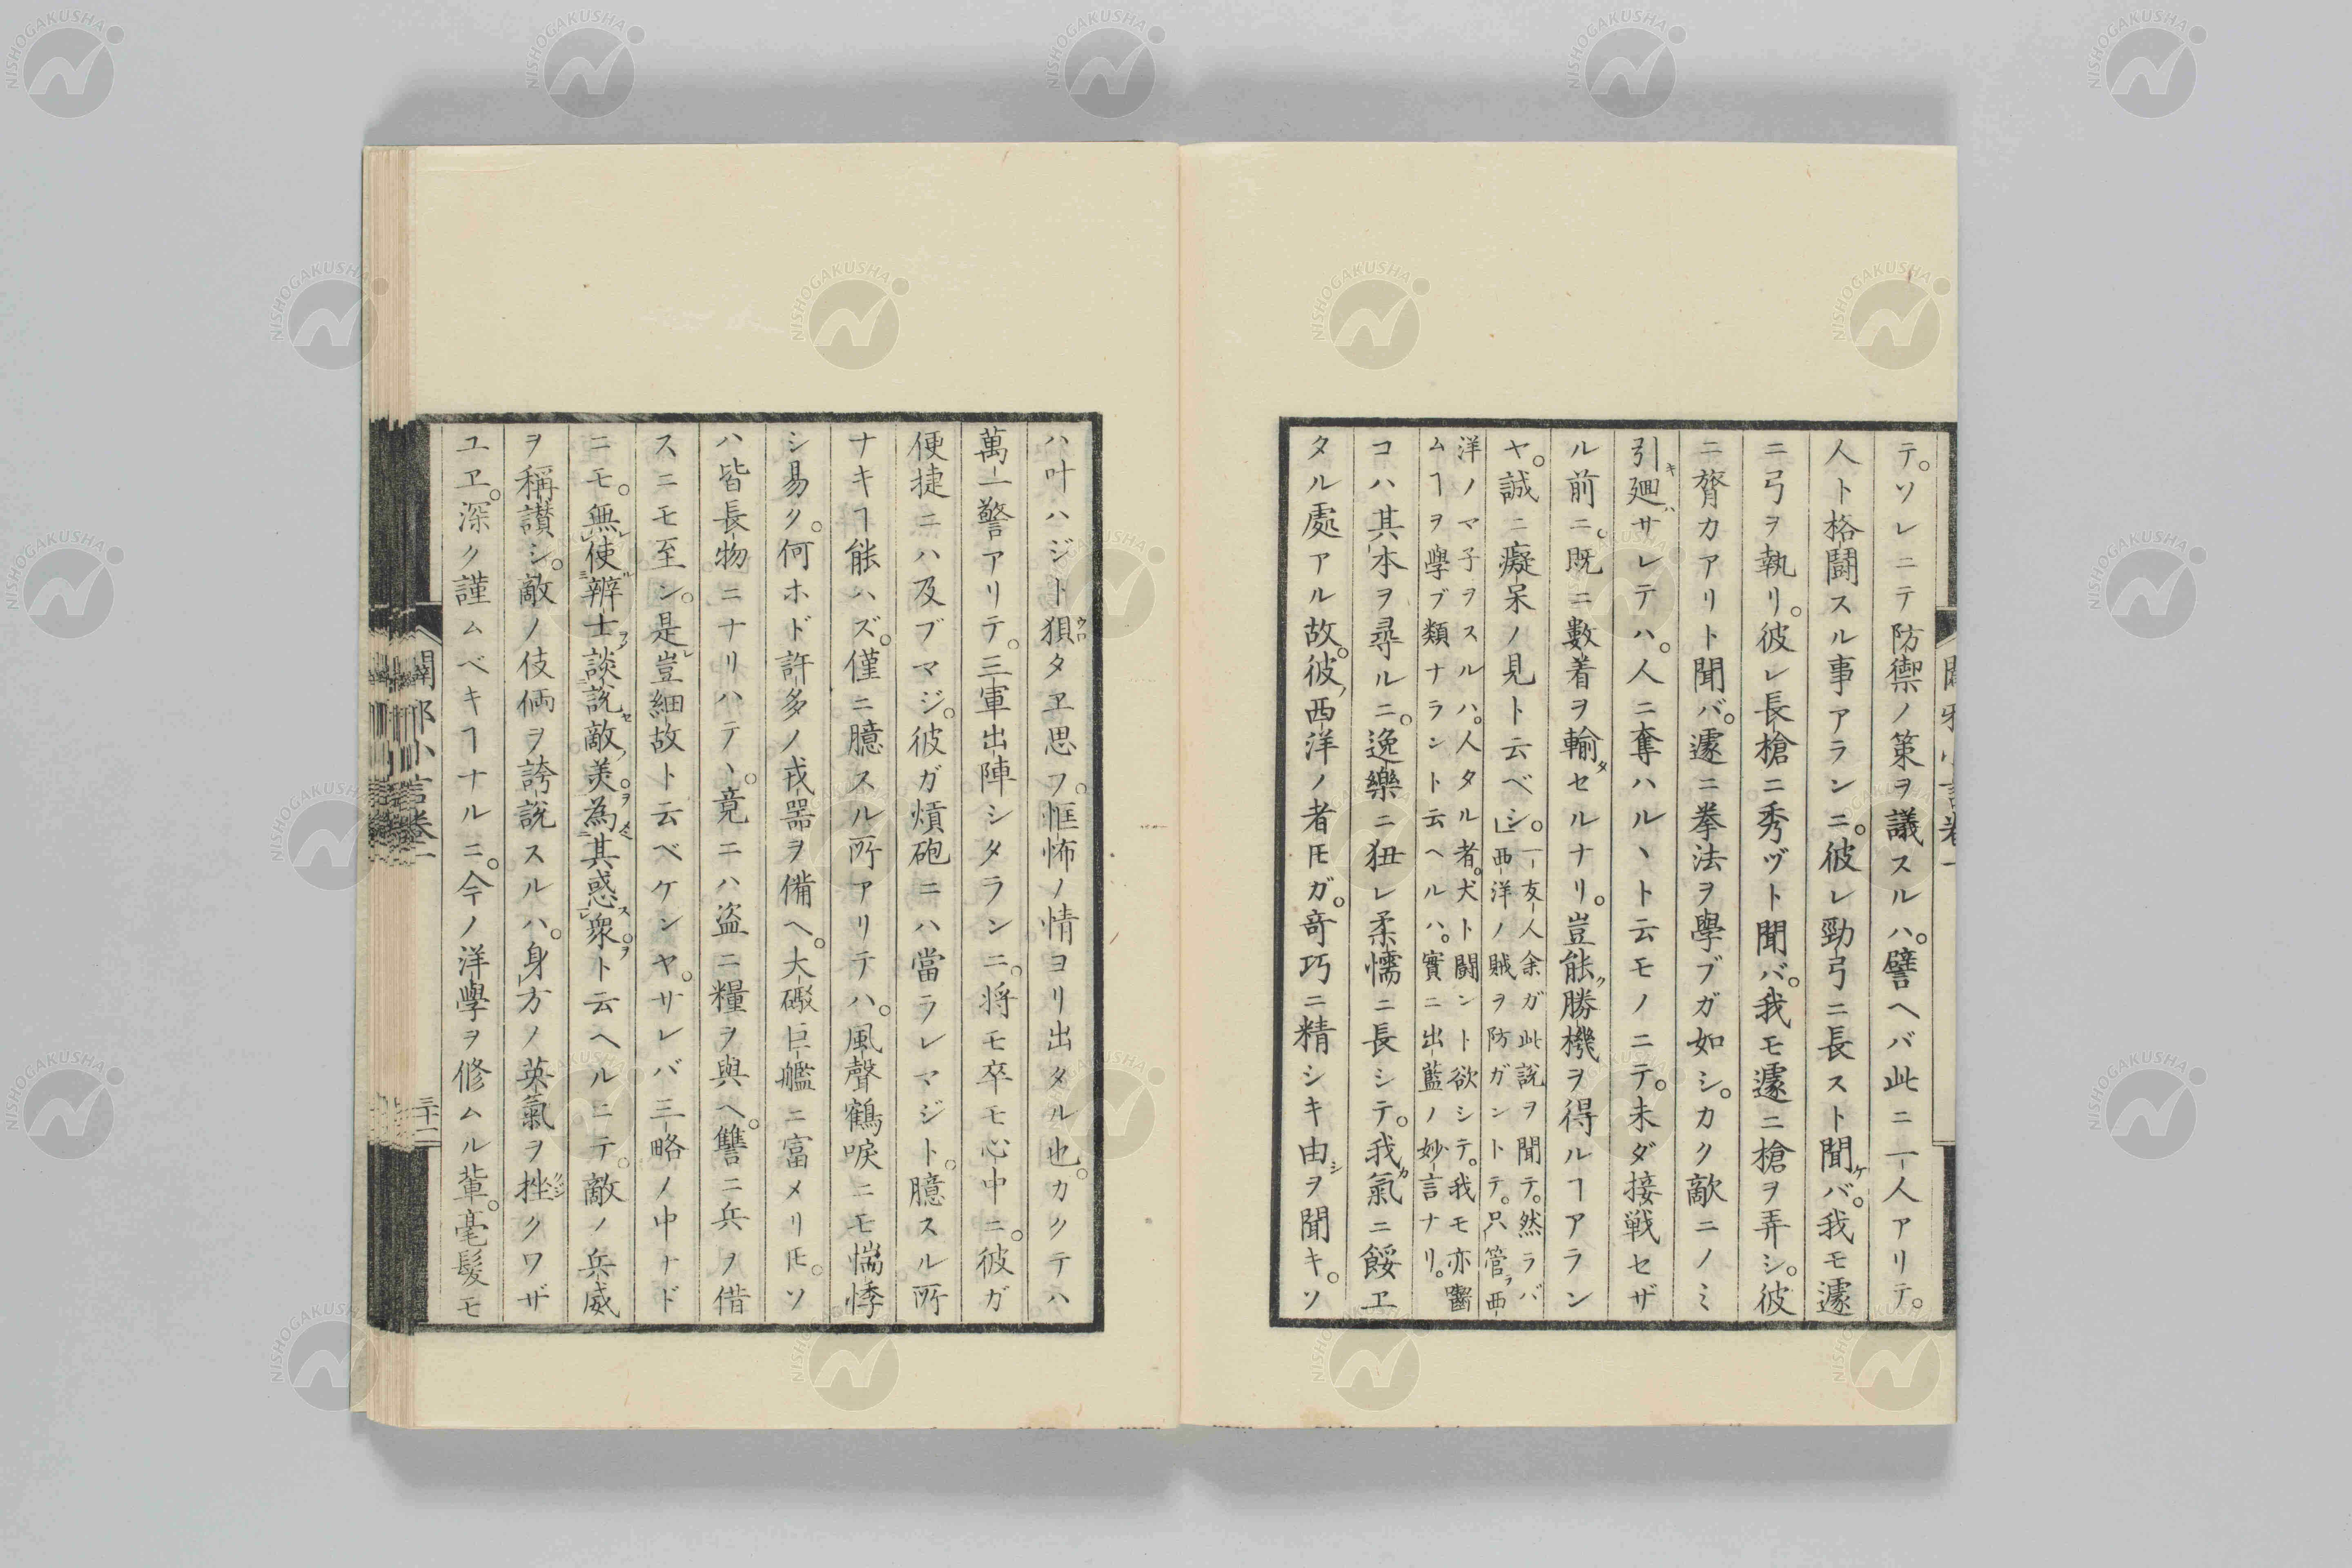 テ。ソレニテ防禦ノ策ヲ議スルハ。譬ヘバ此ニ一人アリテ。
人ト格闘スル事アランニ。彼レ勁弓ニ長スト聞ケバ。我モ遽
ニ弓ヲ執リ。彼レ長槍ニ秀ヅト聞バ。我モ遽ニ槍ヲ弄シ。彼
ニ膂力アリト聞バ。遽ニ拳法ヲ學ブガ如シ。カク敵ニノミ
引キ廻ハサレテハ。人ニ奪ハルヽト云モノニテ。未ダ接戦セザ
ル前ニ。既ニ數着ヲ輸タセルナリ。豈能ク勝機ヲ得ルヿアラン
ヤ。誠ニ癡呆ノ見ト云ベシ。一友人余ガ此説ヲ聞テ。然ラバ
西洋ノ賊ヲ防ガントテ。只管ラ西
洋ノマ子ヲスルハ。人タル者。犬ト闘ント欲シテ。我モ亦齧
ムヿヲ學ブ類ナラント云ヘルハ。實ニ出藍ノ妙言ナリ。
コハ其本ヲ尋ルニ。逸樂ニ狃レ柔懦ニ長シテ。我ガ氣ニ餒ヱ
タル處アル故。彼ノ西洋ノ者𪜈ガ。奇巧ニ精シキ由シヲ聞キ。ソ
闢邪小言卷一
ハ叶ハジト狽ウロタヱ思フ。恇怖ノ情ヨリ出タル也。カクテハ
萬一警アリテ。三軍出陣シタランニ。将モ卒モ心中ニ。彼ガ
便捷ニハ及ブマジ。彼ガ熕砲ニハ當ラレマジト。臆スル所
ナキヿ能ハズ。僅ニ臆スル所アリテハ。風聲鶴唳ニモ惴悸
シ易ク。何ホド許多ノ戎器ヲ備ヘ。大礮巨艦ニ富メリ𪜈。ソ
ハ皆長物ニナリハテヽ。竟ニハ盗ニ糧ヲ與ヘ。讐ニ兵ヲ借
スニモ至ン。是レ豈細故ト云ベケンヤ。サレバ三略ノ中ナド
ニモ。無使辨士談説敵美為其惑衆ト云ヘルニテ。敵ノ兵威
ヲ稱讃シ。敵ノ伎倆ヲ誇説スルハ。身方ノ英氣ヲ挫クジクワザ
ユヱ。深ク謹ムベキヿナルニ。今ノ洋學ヲ修ムル輩。毫髪モ
闢邪小言卷一
三十一